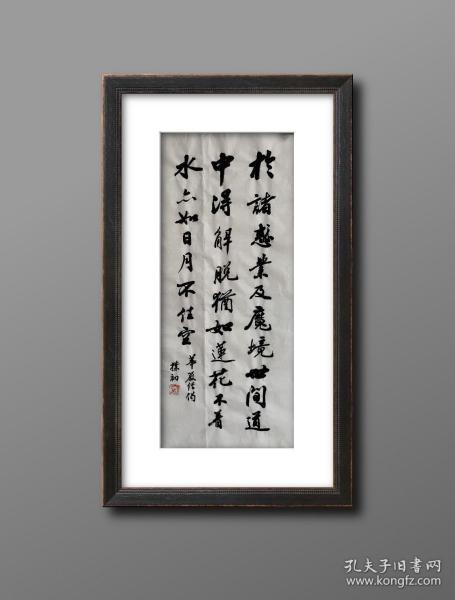 於諸惑業及魔境世间道
中得解脱猶如蓮花不着
水亦如日月不住空
華嚴經偈
樸初
孔夫子旧书网
www.kongfz.com